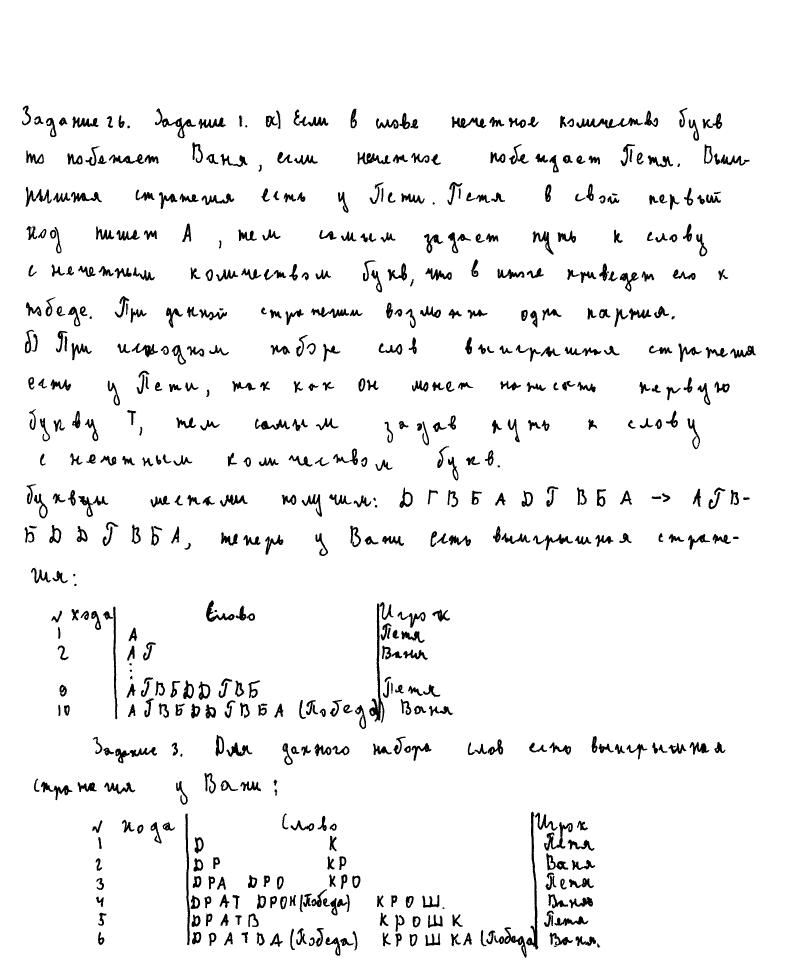 Задание 26. Задание 1. а) Если в слове нечетное количество букв
то побежает Ваня, если нечетное побеждает Петя. Выиг-
рышная стратегия есть у Пети. Петя в свой первый
ход пишет А, тем самым задает путь к слову
с нечетным количеством букв, что в итоге приведет его к
победе. При данной стратегии возможна одна партия.
б) При исходном наборе слов выигрышная стратегия
есть у Пети, так как он может написать первую
букву Т, тем самым задав путь к слову
с нечетным количеством букв.
буквы местами получим: Д Г В Б А Д Г В Б А -> А Г В-
Б Д Д Г В Б А, теперь у Вани есть выигрышная страте-
гия:
№ хода Слово Игрок
1 А Петя
2 А Г Ваня
⋮
9 А Г В Б Д Д Г В Б Петя
10 А Г В Б Д Д Г В Б А (Победа) Ваня
Задание 3. Для данного набора слов есть выигрышная
стратегия у Вани:
№ хода Слово Игрок
1 Д К Петя
2 Д Р К Р Ваня
3 Д Р А Д Р О К Р О Петя
4 Д Р А Т Д Р О Н (Победа) К Р О Ш. Ваня
5 Д Р А Т В К Р О Ш К Петя
6 Д Р А Т В А (Победа) К Р О Ш К А (Победа) Ваня.